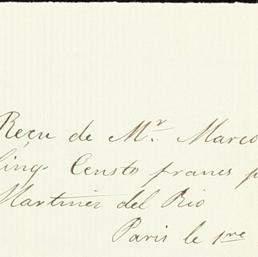 Reçu de Mr. Marco
Cinq Cents francs p
Martinez del Rio
Paris le 1re